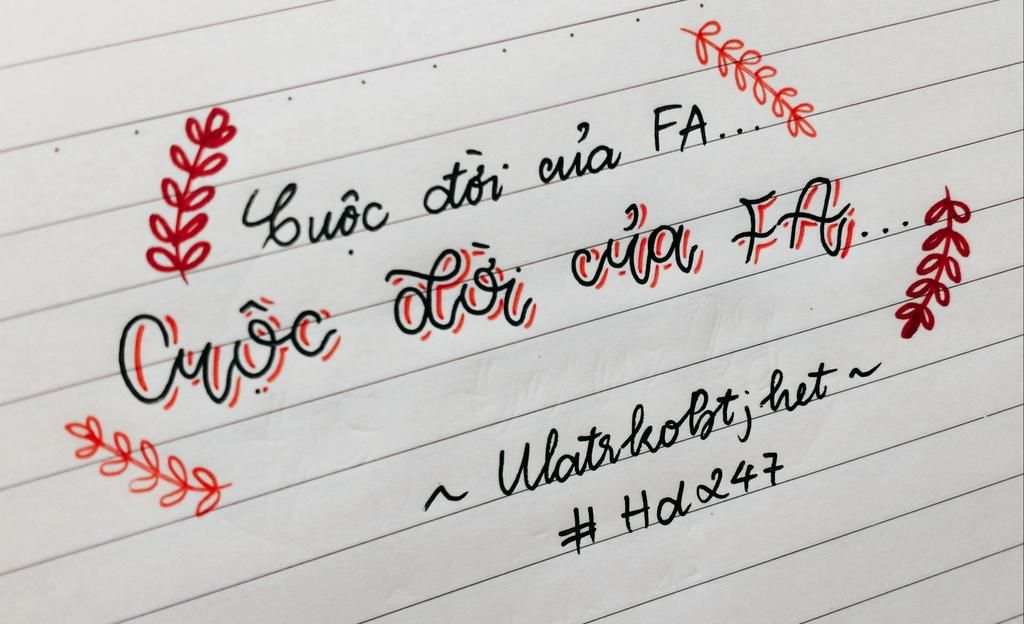 Cuộc đời của FA...
Cuộc đời của FA...
~ Ulatrkobtjhet ~
# Hd247